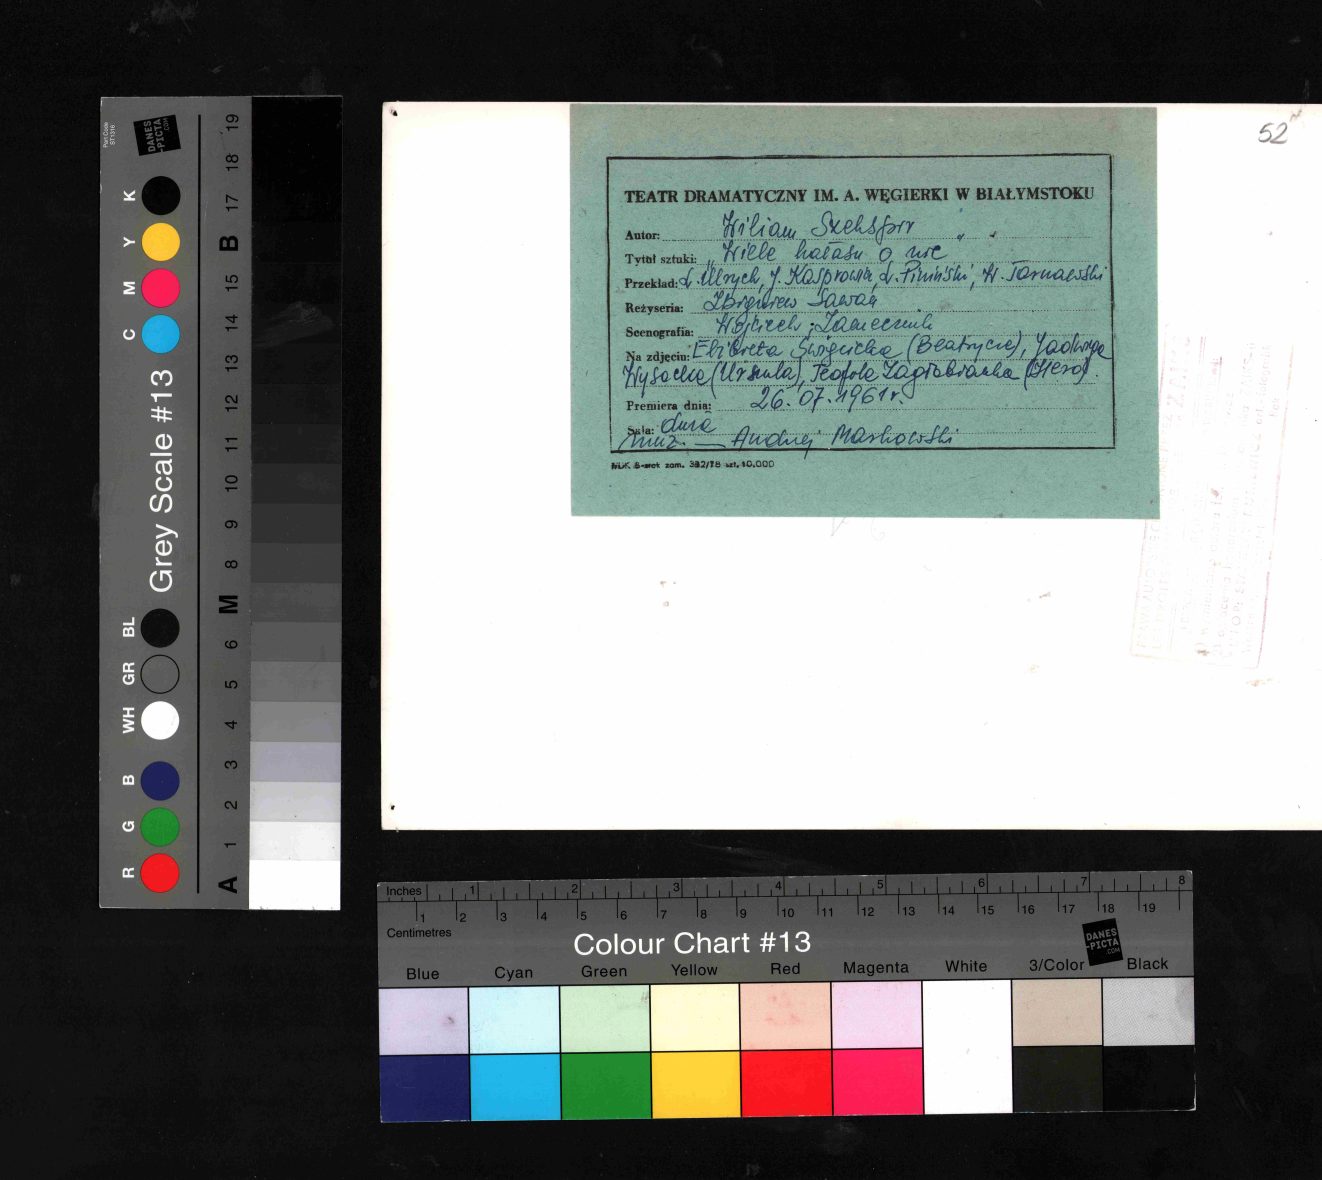 52
TEATR DRAMATYCZNY IM. A. WĘGIERKI W BIAŁYMSTOKU
Autor: Wiliam Szekspir
Tytuł sztuki: „Wiele hałasu o nic"
Przekład: L. Ulrych, J. Kasprowicz, L. Piniński, W. Tarnawski
Reżyseria: Zbigniew Sawan
Scenografia: Wojciech Zamecznik
Na zdjęciu: Elżbieta Święcicka (Beatrycze), Jadwiga
Wysocka (Urszula), Teofila Zagłobianka (Hero).
Premiera dnia: 26.07.1961r.
Sala: duża
muz. — Andrzej Markowski
zam. 382/78 szt. 10.000
Grey Scale #13
DANES
-PICTA
.COM
K Y M C BL GR WH B G R
19 18 17 B 15 14 13 12 11 10 9 8 M 6 5 4 3 2 1 A
Inches 1 2 3 4 5 6 7 8
1 2 3 4 5 6 7 8 9 10 11 12 13 14 15 16 17 18 19
Centimetres
Colour Chart #13
DANES
-PICTA
.COM
Blue Cyan Green Yellow Red Magenta White 3/Color Black